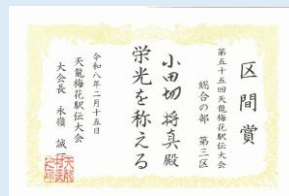 区間賞
第五十五回天龍梅花駅伝大会
総合の部 第三区
小田切 将真 殿
栄光を称える
令和八年二月十五日
天龍梅花駅伝大会
大会長 永嶺 誠